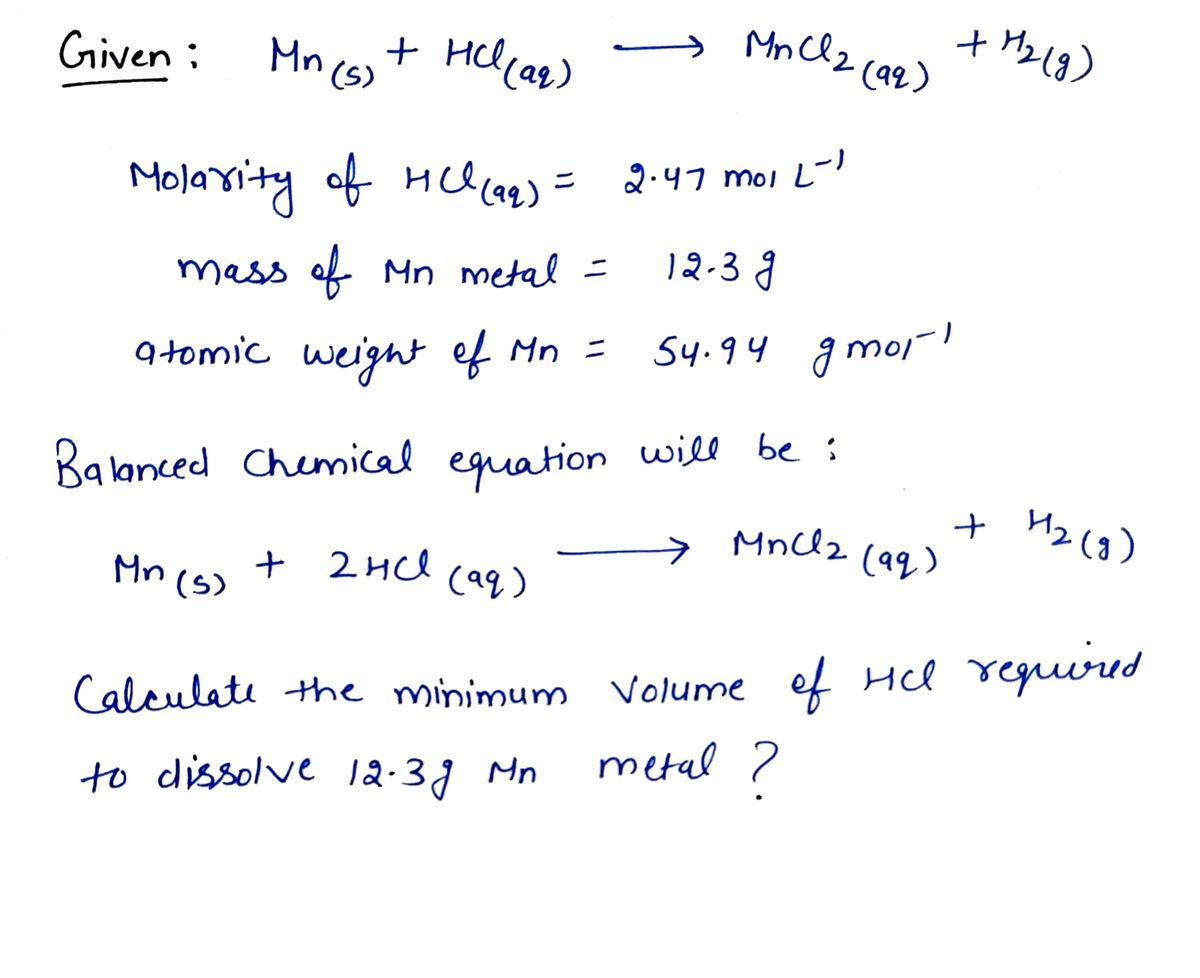 Given : Mn(s) + HCl(aq) ⟶ MnCl2(aq) + H2(g)
Molarity of HCl(aq) = 2.47 mol L⁻¹
mass of Mn metal = 12.3 g
atomic weight of Mn = 54.94 g mol⁻¹
Balanced Chemical equation will be :
Mn(s) + 2HCl(aq) ⟶ MnCl2(aq) + H2(g)
Calculate the minimum volume of HCl required
to dissolve 12.3g Mn metal ?